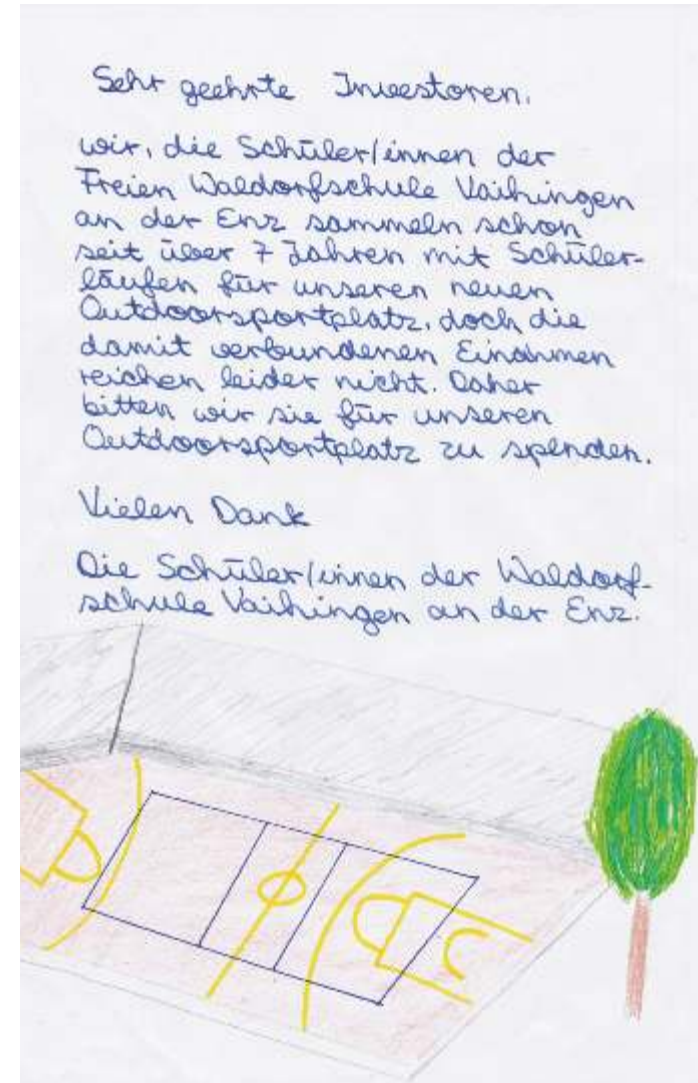 Sehr geehrte Investoren,
wir, die Schüler/innen der
Freien Waldorfschule Vaihingen
an der Enz sammeln schon
seit über 7 Jahren mit Schüler-
läufen für unseren neuen
Outdoorsportplatz, doch die
damit verbundenen Einahmen
reichen leider nicht. Daher
bitten wir sie für unseren
Outdoorsportplatz zu spenden.
Vielen Dank
Die Schüler/innen der Waldorf-
schule Vaihingen an der Enz.